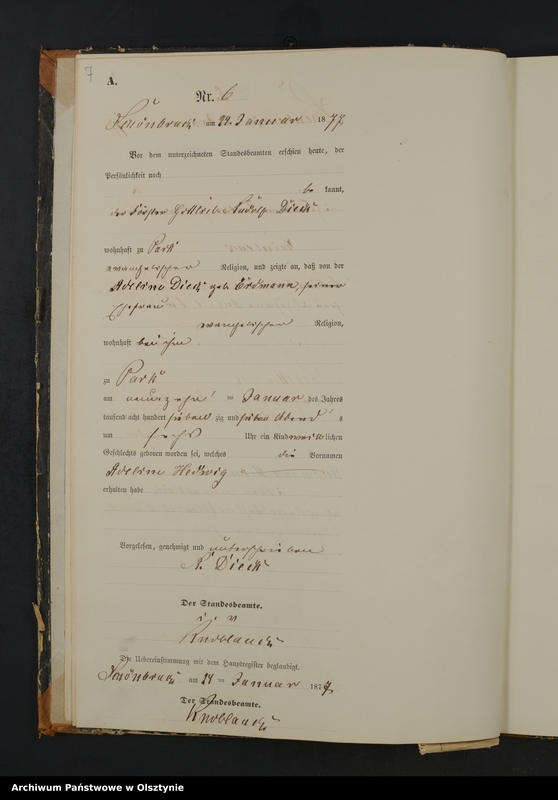 7
A.
Nr. 6
Schönbruch am 24. Januar 1877
Vor dem unterzeichneten Standesbeamten erschien heute, der
Persönlichkeit nach
be kannt,
der Förster Gottlieb Rudolf Dieck
wohnhaft zu Park
evangelischer Religion, und zeigte an, daß von der
Adeline Dieck geb. Erdmann, seiner
Ehefrau
evangelischer Religion,
wohnhaft bei ihm
zu Park
am neunzehn Januar des Jahres
tausend acht hundert sieben zig und sieben Abends
um sechs Uhr ein Kind weiblichen
Geschlechts geboren worden sei, welches die Vornamen
Adeline Hedwig
erhalten habe
Vorgelesen, genehmigt und unterschrieben
R. Dieck
Der Standesbeamte.
Knoblauch
Die Uebereinstimmung mit dem Hauptregister beglaubigt.
Schönbruch am 24 Januar 1877
Der Standesbeamte.
Knoblauch
Archiwum Państwowe w Olsztynie